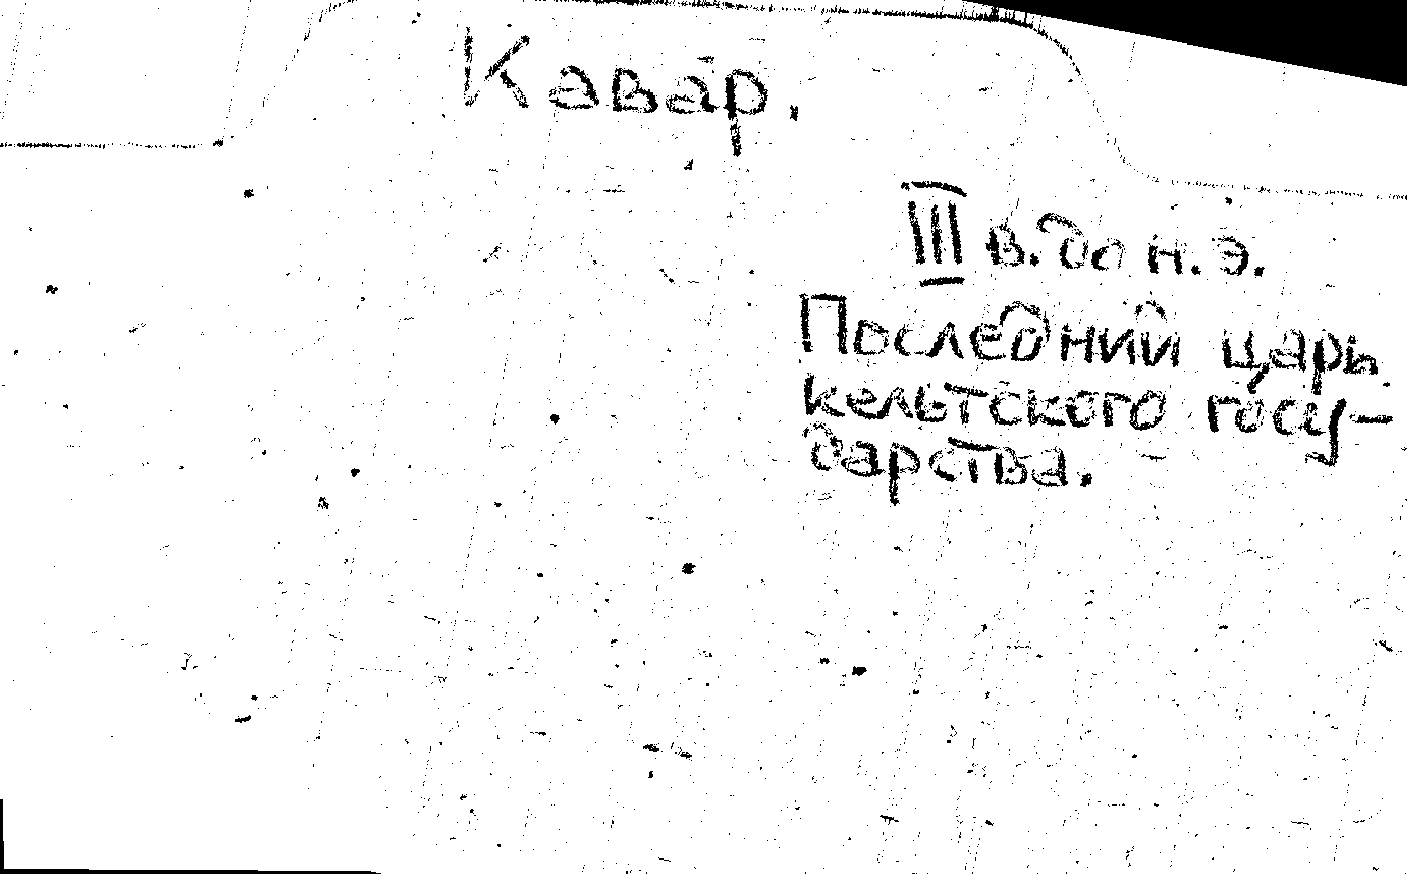 Кавар.
III в. до н. э.
Последний царь
кельтского госу-
дарства.